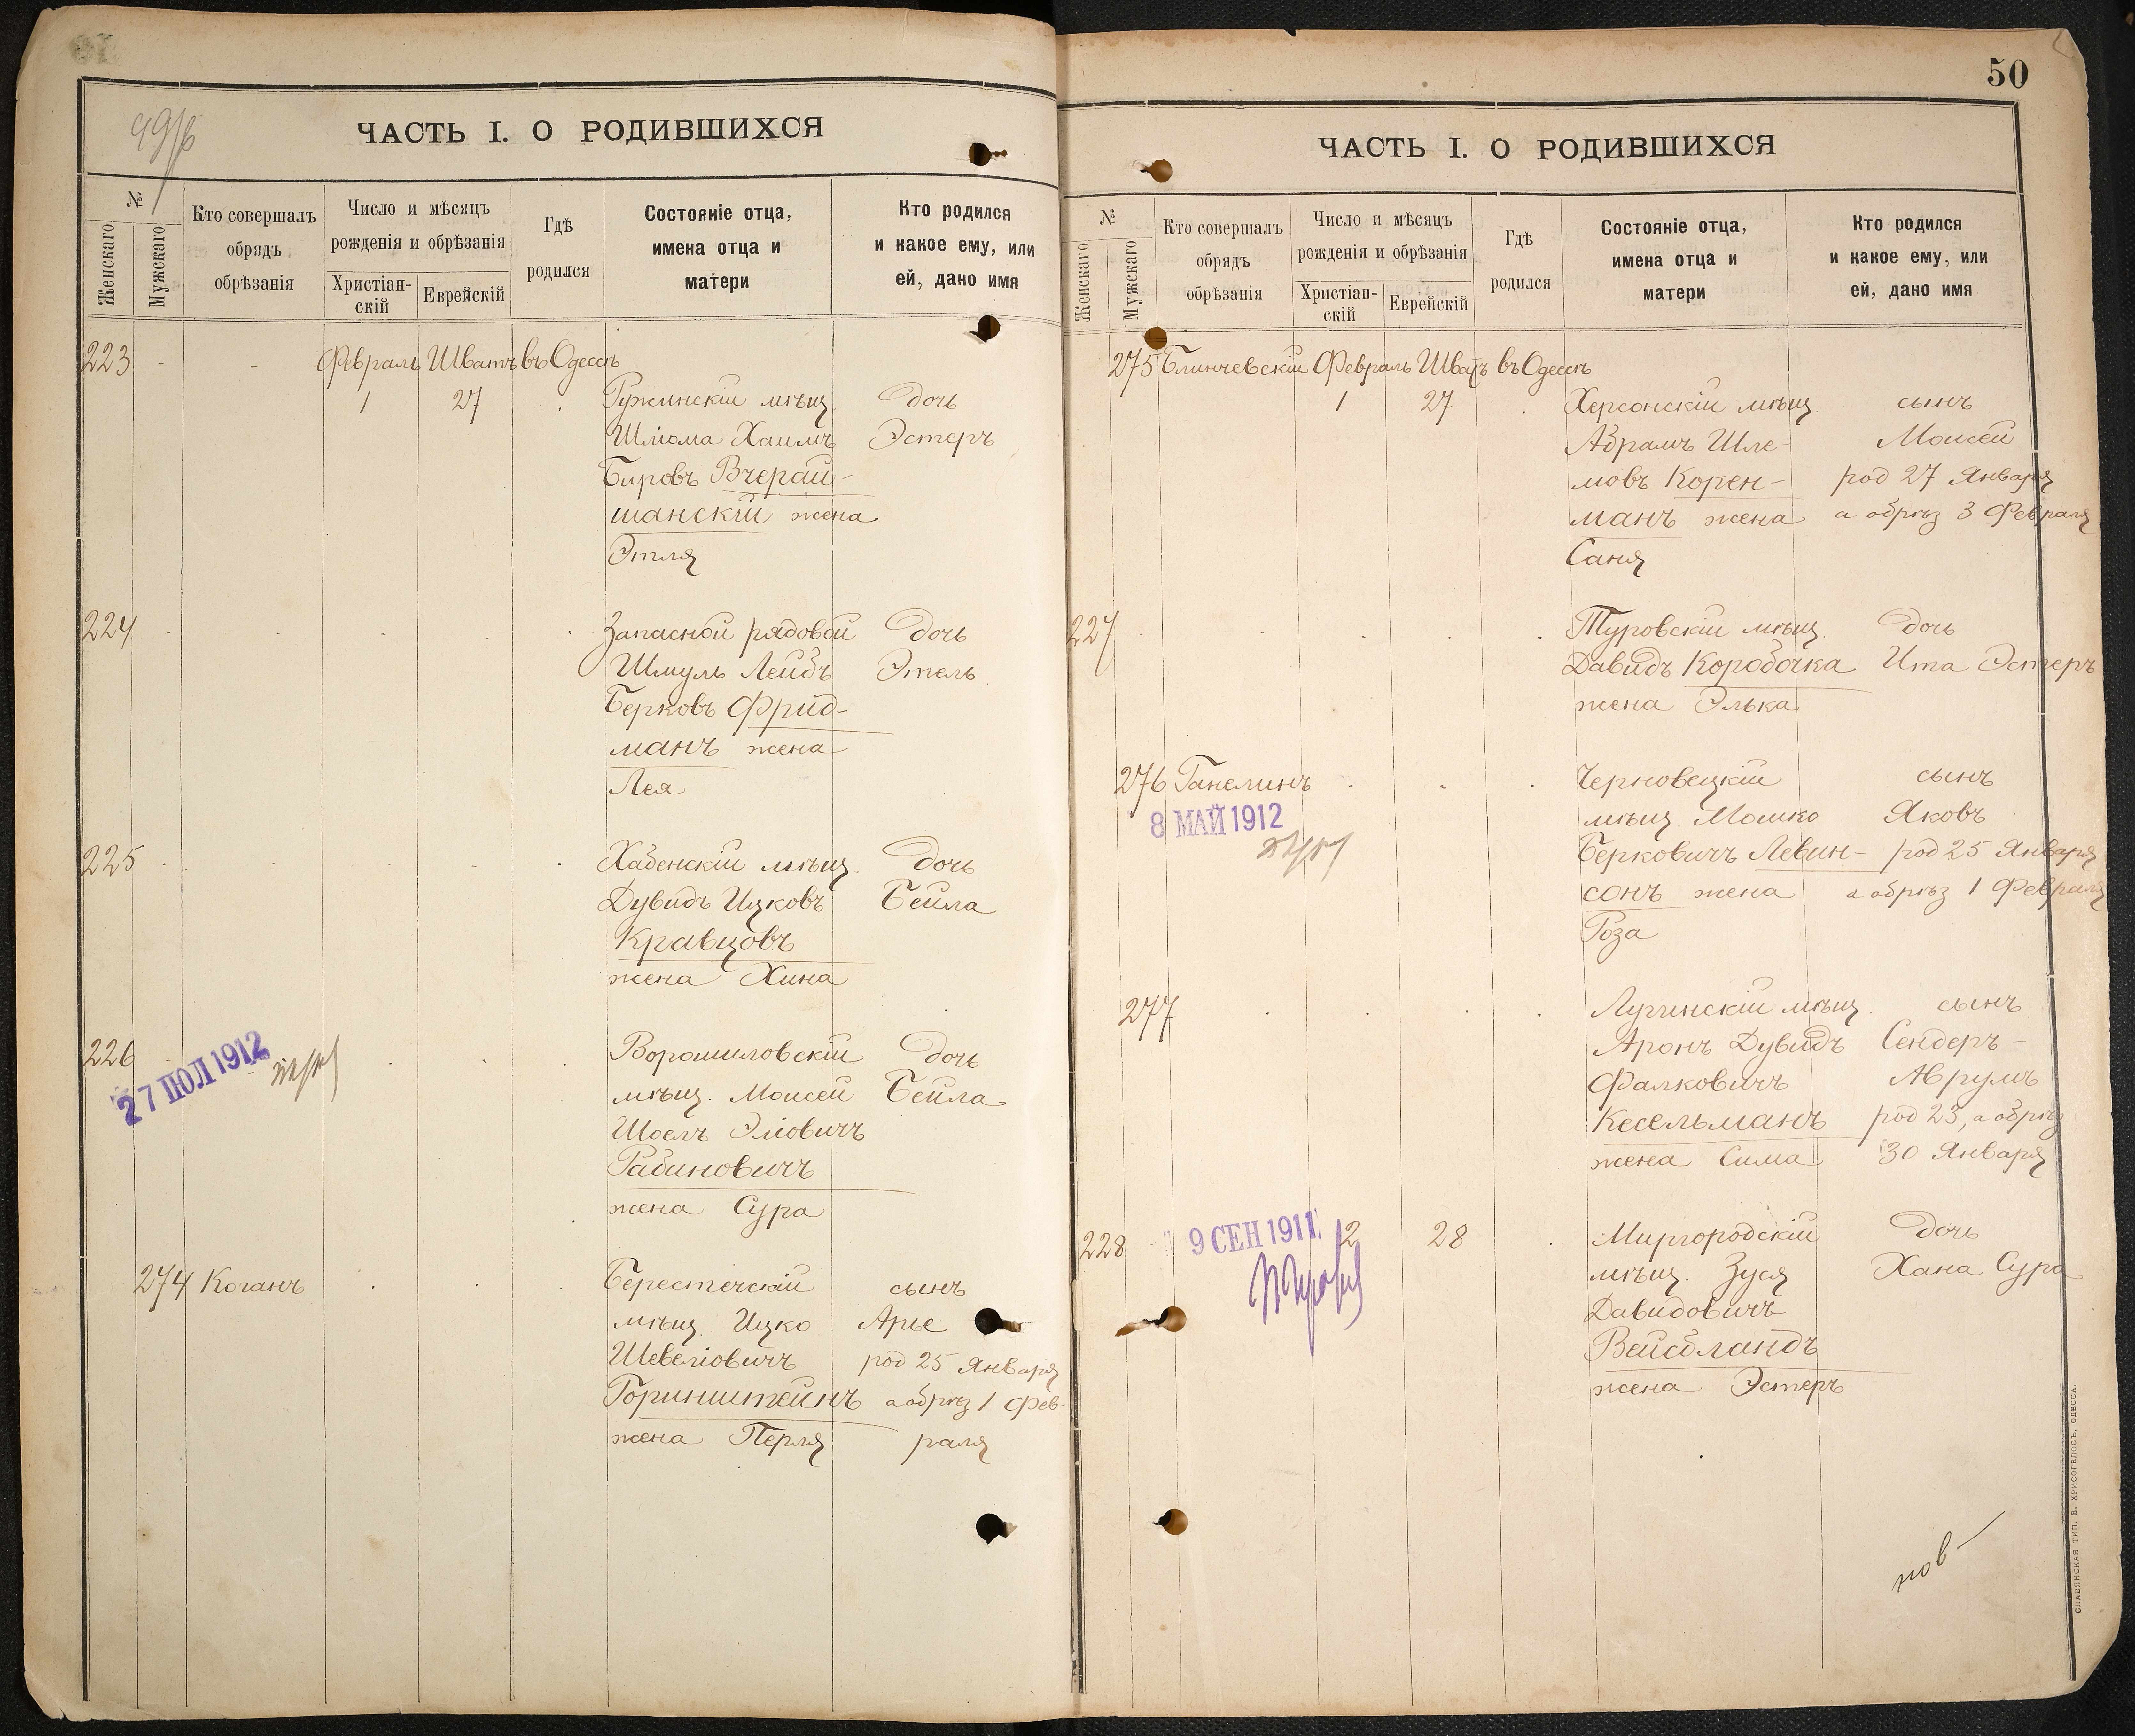 ЧАСТЬ I. О РОДИВШИХСЯ
№
Женскаго
Мужскаго
Кто совершалъ
обрядъ
обрѣзанія
Число и мѣсяцъ
рожденія и обрѣзанія
Христіан-
скій
Еврейскій
Гдѣ
родился
Состояніе отца,
имена отца и
матери
Кто родился
и какое ему, или
ей, дано имя
223 - - Февраль Шватъ въ Одессѣ
1 27 Ружинскій мѣщ. дочь
Шліома Хаимъ Эстеръ
Бировъ Вчерай-
шанскій жена
Этля
224 Запасной рядовой дочь
Шмуль Лейбъ Этель
Берковъ Фрид-
манъ жена
Лея
225 Хабенскій мѣщ. дочь
Дувидъ Ицковъ Бейла
Кравцовъ
жена Хина
226 Ворошиловскій дочь
27 ІЮЛ 1912
мѣщ. Моисей Бейла
Шоелъ Эліовичъ
Рабиновичъ
жена Сура
274 Коганъ Берестечскій сынъ
мѣщ. Ицко Арье
Шевеліовичъ род 25 Января
Горинштейнъ а обрѣз 1 Фев-
жена Перля раля
50
ЧАСТЬ I. О РОДИВШИХСЯ
№
Женскаго
Мужскаго
Кто совершалъ
обрядъ
обрѣзанія
Число и мѣсяцъ
рожденія и обрѣзанія
Христіан-
скій
Еврейскій
Гдѣ
родился
Состояніе отца,
имена отца и
матери
Кто родился
и какое ему, или
ей, дано имя
275 Блинчевскій Февраль Шватъ въ Одессѣ
1 27 Херсонскій мѣщ. сынъ
Абрамъ Шле- Моисей
мовъ Корен- род 27 Января
манъ жена а обрѣз 3 Февраля
Саня
227 Туровскій мѣщ. дочь
Давидъ Коробочка Ита Эстеръ
жена Элька
276 Ганелинъ Черновецкій сынъ
8 МАЙ 1912
мѣщ. Мошко Яковъ
Берковичъ Левин- род 25 Января
сонъ жена а обрѣз 1 Февраля
Роза
277 Лугинскій мѣщ. сынъ
Аронъ Дувидъ Сендеръ-
Фалковичъ Аврумъ
Кесельманъ род 23, а обрѣз
жена Сима 30 Января
228 9 СЕН 1911 2 28 Миргородскій дочь
мѣщ. Зуся Хана Сура
Давидовичъ
Вейсбландъ
жена Эстеръ
нов-
СЛАВЯНСКАЯ ТИП. Е. ХРИСОГЕЛОСЪ, ОДЕССА.